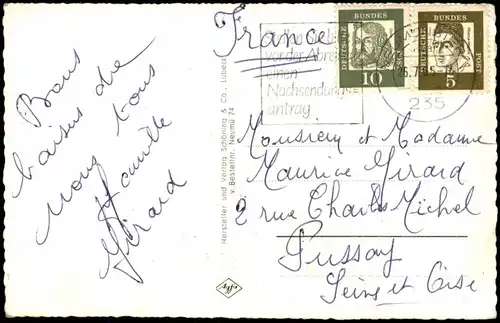 France
DEUTSCHE BUNDES POST
10
DEUTSCHE BUNDES POST
5
vor der
einen
Nachsendungs-
antrag
235
Bons
baisers de
nous tous
Famille
Girard
Hersteller und Verlag Schöning & Co., Lübeck
v. Bestellnr. Neumü 74
Agfa
Monsieur et Madame
Maurice Girard
2 rue Charles Michel
Pussay
Seine et Oise